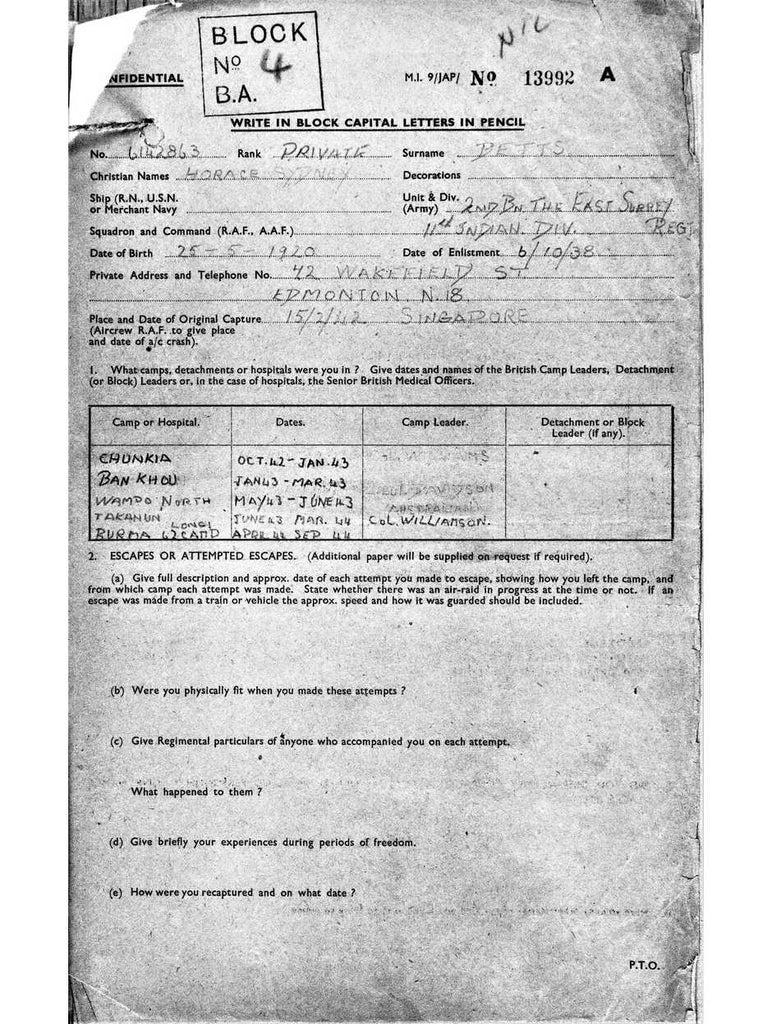 BLOCK
Nº 4
B.A.
NIL
NFIDENTIAL
M.I. 9/JAP/ Nº 13992 A
WRITE IN BLOCK CAPITAL LETTERS IN PENCIL
No. 6142863 Rank PRIVATE Surname BETTS
Christian Names HORACE SYDNEY Decorations
Ship (R.N., U.S.N. or Merchant Navy
Unit & Div. (Army) 2ND BN THE EAST SURREY REGT
Squadron and Command (R.A.F., A.A.F.) 11th INDIAN DIV.
Date of Birth 25-5-1920 Date of Enlistment 6/10/38
Private Address and Telephone No. 42 WAKEFIELD ST
EDMONTON. N.18.
Place and Date of Original Capture 15/2/42 SINGAPORE
(Aircrew R.A.F. to give place
and date of a/c crash).
1. What camps, detachments or hospitals were you in ? Give dates and names of the British Camp Leaders, Detachment
(or Block) Leaders or, in the case of hospitals, the Senior British Medical Officers.
Camp or Hospital. Dates. Camp Leader. Detachment or Block
Leader (if any).
CHUNKIA OCT.42-JAN.43 WILLIAMS
BAN KHOU JAN43-MAR.43
WAMPO NORTH MAY43-JUNE43 AUSTRALIAN
TAKANUN JUNE43 MAR. 44 COL. WILLIAMSON.
BURMA 62 CAMP APRL 44 SEP 44
2. ESCAPES OR ATTEMPTED ESCAPES. (Additional paper will be supplied on request if required).
(a) Give full description and approx. date of each attempt you made to escape, showing how you left the camp, and
from which camp each attempt was made. State whether there was an air-raid in progress at the time or not. If an
escape was made from a train or vehicle the approx. speed and how it was guarded should be included.
(b) Were you physically fit when you made these attempts ?
(c) Give Regimental particulars of anyone who accompanied you on each attempt.
What happened to them ?
(d) Give briefly your experiences during periods of freedom.
(e) How were you recaptured and on what date ?
P.T.O.